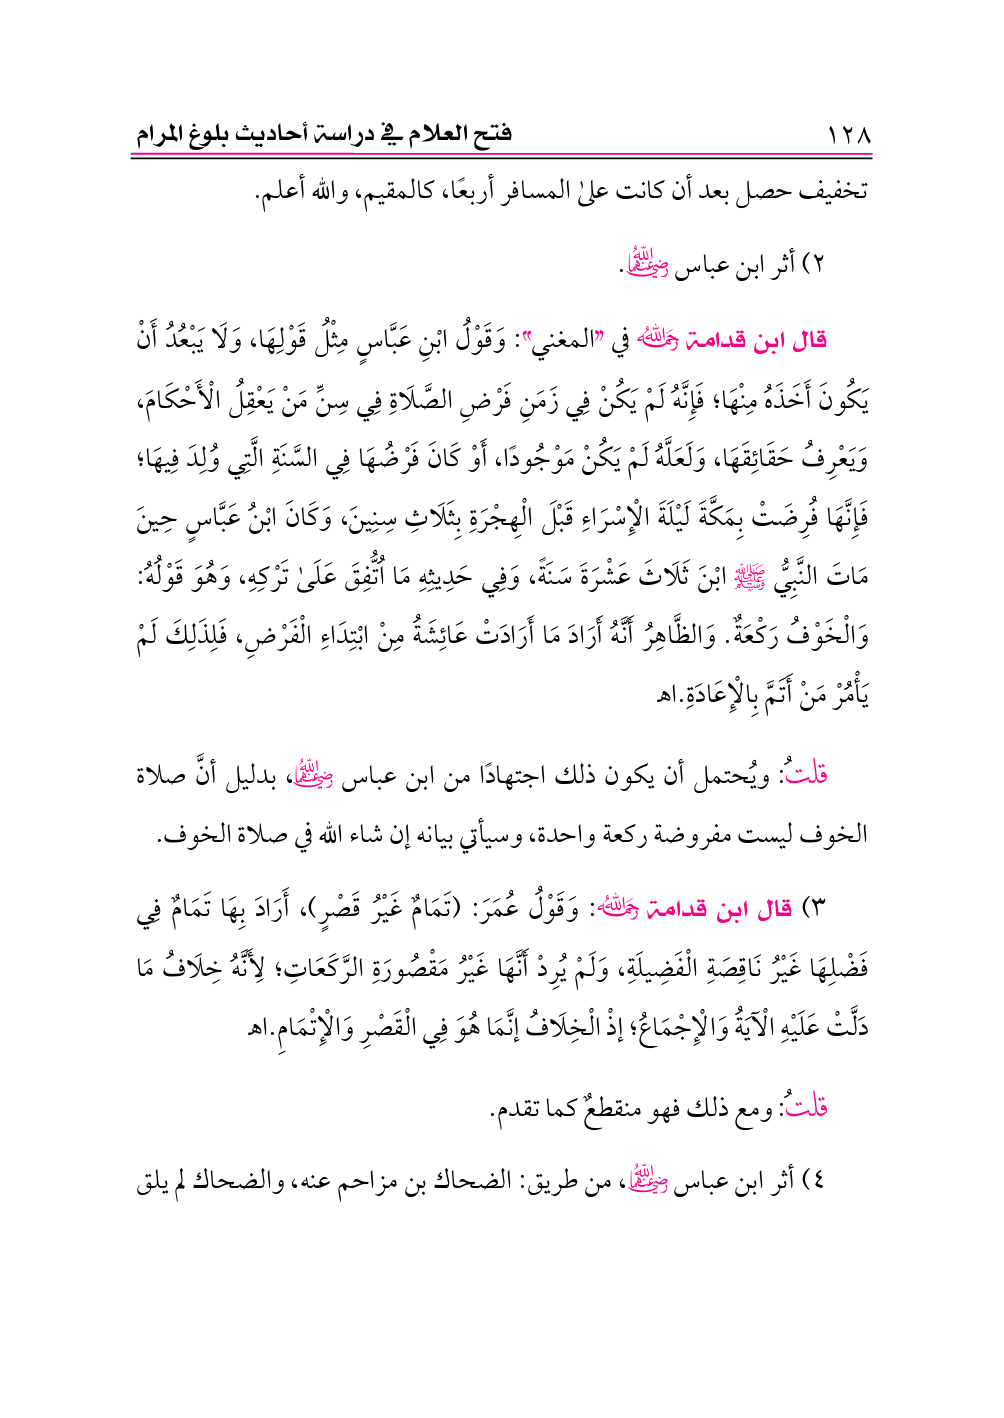 ١٢٨ فتح العلام في دراسة أحاديث بلوغ المرام
تخفيف حصل بعد أن كانت علىٰ المسافر أربعًا، كالمقيم، والله أعلم.
٢) أثر ابن عباس رضي الله عنهما.
قال ابن قدامة رحمه الله في "المغني": وَقَوْلُ ابْنِ عَبَّاسٍ مِثْلُ قَوْلِهَا، وَلَا يَبْعُدُ أَنْ
يَكُونَ أَخَذَهُ مِنْهَا؛ فَإِنَّهُ لَمْ يَكُنْ فِي زَمَنِ فَرْضِ الصَّلَاةِ فِي سِنِّ مَنْ يَعْقِلُ الْأَحْكَامَ،
وَيَعْرِفُ حَقَائِقَهَا، وَلَعَلَّهُ لَمْ يَكُنْ مَوْجُودًا، أَوْ كَانَ فَرْضُهَا فِي السَّنَةِ الَّتِي وُلِدَ فِيهَا؛
فَإِنَّهَا فُرِضَتْ بِمَكَّةَ لَيْلَةَ الْإِسْرَاءِ قَبْلَ الْهِجْرَةِ بِثَلَاثِ سِنِينَ، وَكَانَ ابْنُ عَبَّاسٍ حِينَ
مَاتَ النَّبِيُّ ﷺ ابْنَ ثَلَاثَ عَشْرَةَ سَنَةً، وَفِي حَدِيثِهِ مَا اُتُّفِقَ عَلَىٰ تَرْكِهِ، وَهُوَ قَوْلُهُ:
وَالْخَوْفُ رَكْعَةٌ. وَالظَّاهِرُ أَنَّهُ أَرَادَ مَا أَرَادَتْ عَائِشَةُ مِنْ ابْتِدَاءِ الْفَرْضِ، فَلِذَلِكَ لَمْ
يَأْمُرْ مَنْ أَتَمَّ بِالْإِعَادَةِ.اهـ
قلتُ: ويُحتمل أن يكون ذلك اجتهادًا من ابن عباس رضي الله عنهما، بدليل أنَّ صلاة
الخوف ليست مفروضة ركعة واحدة، وسيأتي بيانه إن شاء الله في صلاة الخوف.
٣) قال ابن قدامة رحمه الله: وَقَوْلُ عُمَرَ: (تَمَامٌ غَيْرُ قَصْرٍ)، أَرَادَ بِهَا تَمَامٌ فِي
فَضْلِهَا غَيْرُ نَاقِصَةِ الْفَضِيلَةِ، وَلَمْ يُرِدْ أَنَّهَا غَيْرُ مَقْصُورَةِ الرَّكَعَاتِ؛ لِأَنَّهُ خِلَافُ مَا
دَلَّتْ عَلَيْهِ الْآيَةُ وَالْإِجْمَاعُ؛ إذْ الْخِلَافُ إنَّمَا هُوَ فِي الْقَصْرِ وَالْإِتْمَامِ.اهـ
قلتُ: ومع ذلك فهو منقطعٌ كما تقدم.
٤) أثر ابن عباس رضي الله عنهما، من طريق: الضحاك بن مزاحم عنه، والضحاك لم يلق